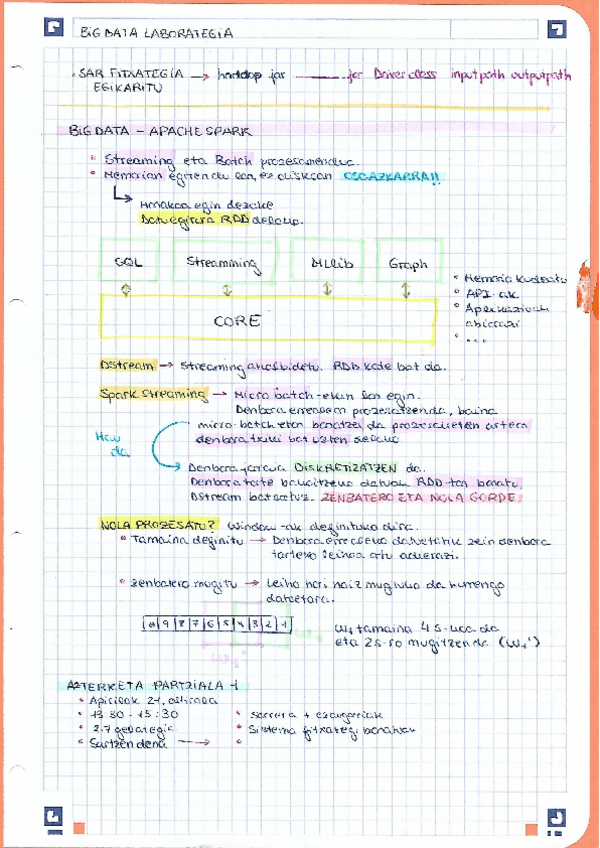 BIG DATA LABORATEGIA
.JAR FITXATEGIA → haddop jar .jar Driver class inputpath outputpath
EGIKARITU
BIG DATA - APACHE SPARK
• Streaming eta Batch prozesamendua.
• Memorian egiten du lan, ez diskoan OSO AZKARRA!!
Hmakoa egin dezake
Datu egitura RDD delako.
SQL Streamming MLlib Graph
CORE
• Memoria kudeatu
• API ak
• Aplikazioak
abiarazi
• ...
DStream → Streaming anosbidetu. RDD kate bat da.
Spark Streaming → Micro batch-ekin lan egin.
Denbora errealean prozesatzen da, baina
micro-batchetan banatzen da prozesuteten artean
denbora txiki bat uzten delako
Hau
da
Denbora jarraia DISKRETIZATZEN da.
Denbora tarte bakoitzeko datuak RDD-tan banatu,
DStream bat sortuz. ZENBATERO ETA NOLA GORDE.
NOLA PROZESATU? Window-ak definituko dira.
• Tamaina definitu → Denbora errealeko datuetatik zein denbora
tarteko leihoa artu adierazi.
• Zenbatero mugitu → Leiho hori noiz mugituko da hurrengo
datuetara.
10 9 8 7 6 5 4 3 2 1
W₁ tamaina 4 s-koa da
eta 2s-ro mugitzen da (W₁')
AZTERKETA PARTZIALA 1
• Apirilak 21, osteala
• 13:30 - 15:30
• 2.7 gelategia
• Sartzen dena →
• Sarrera + ezaugarriak
• Sistema fitxategi banatuak
•